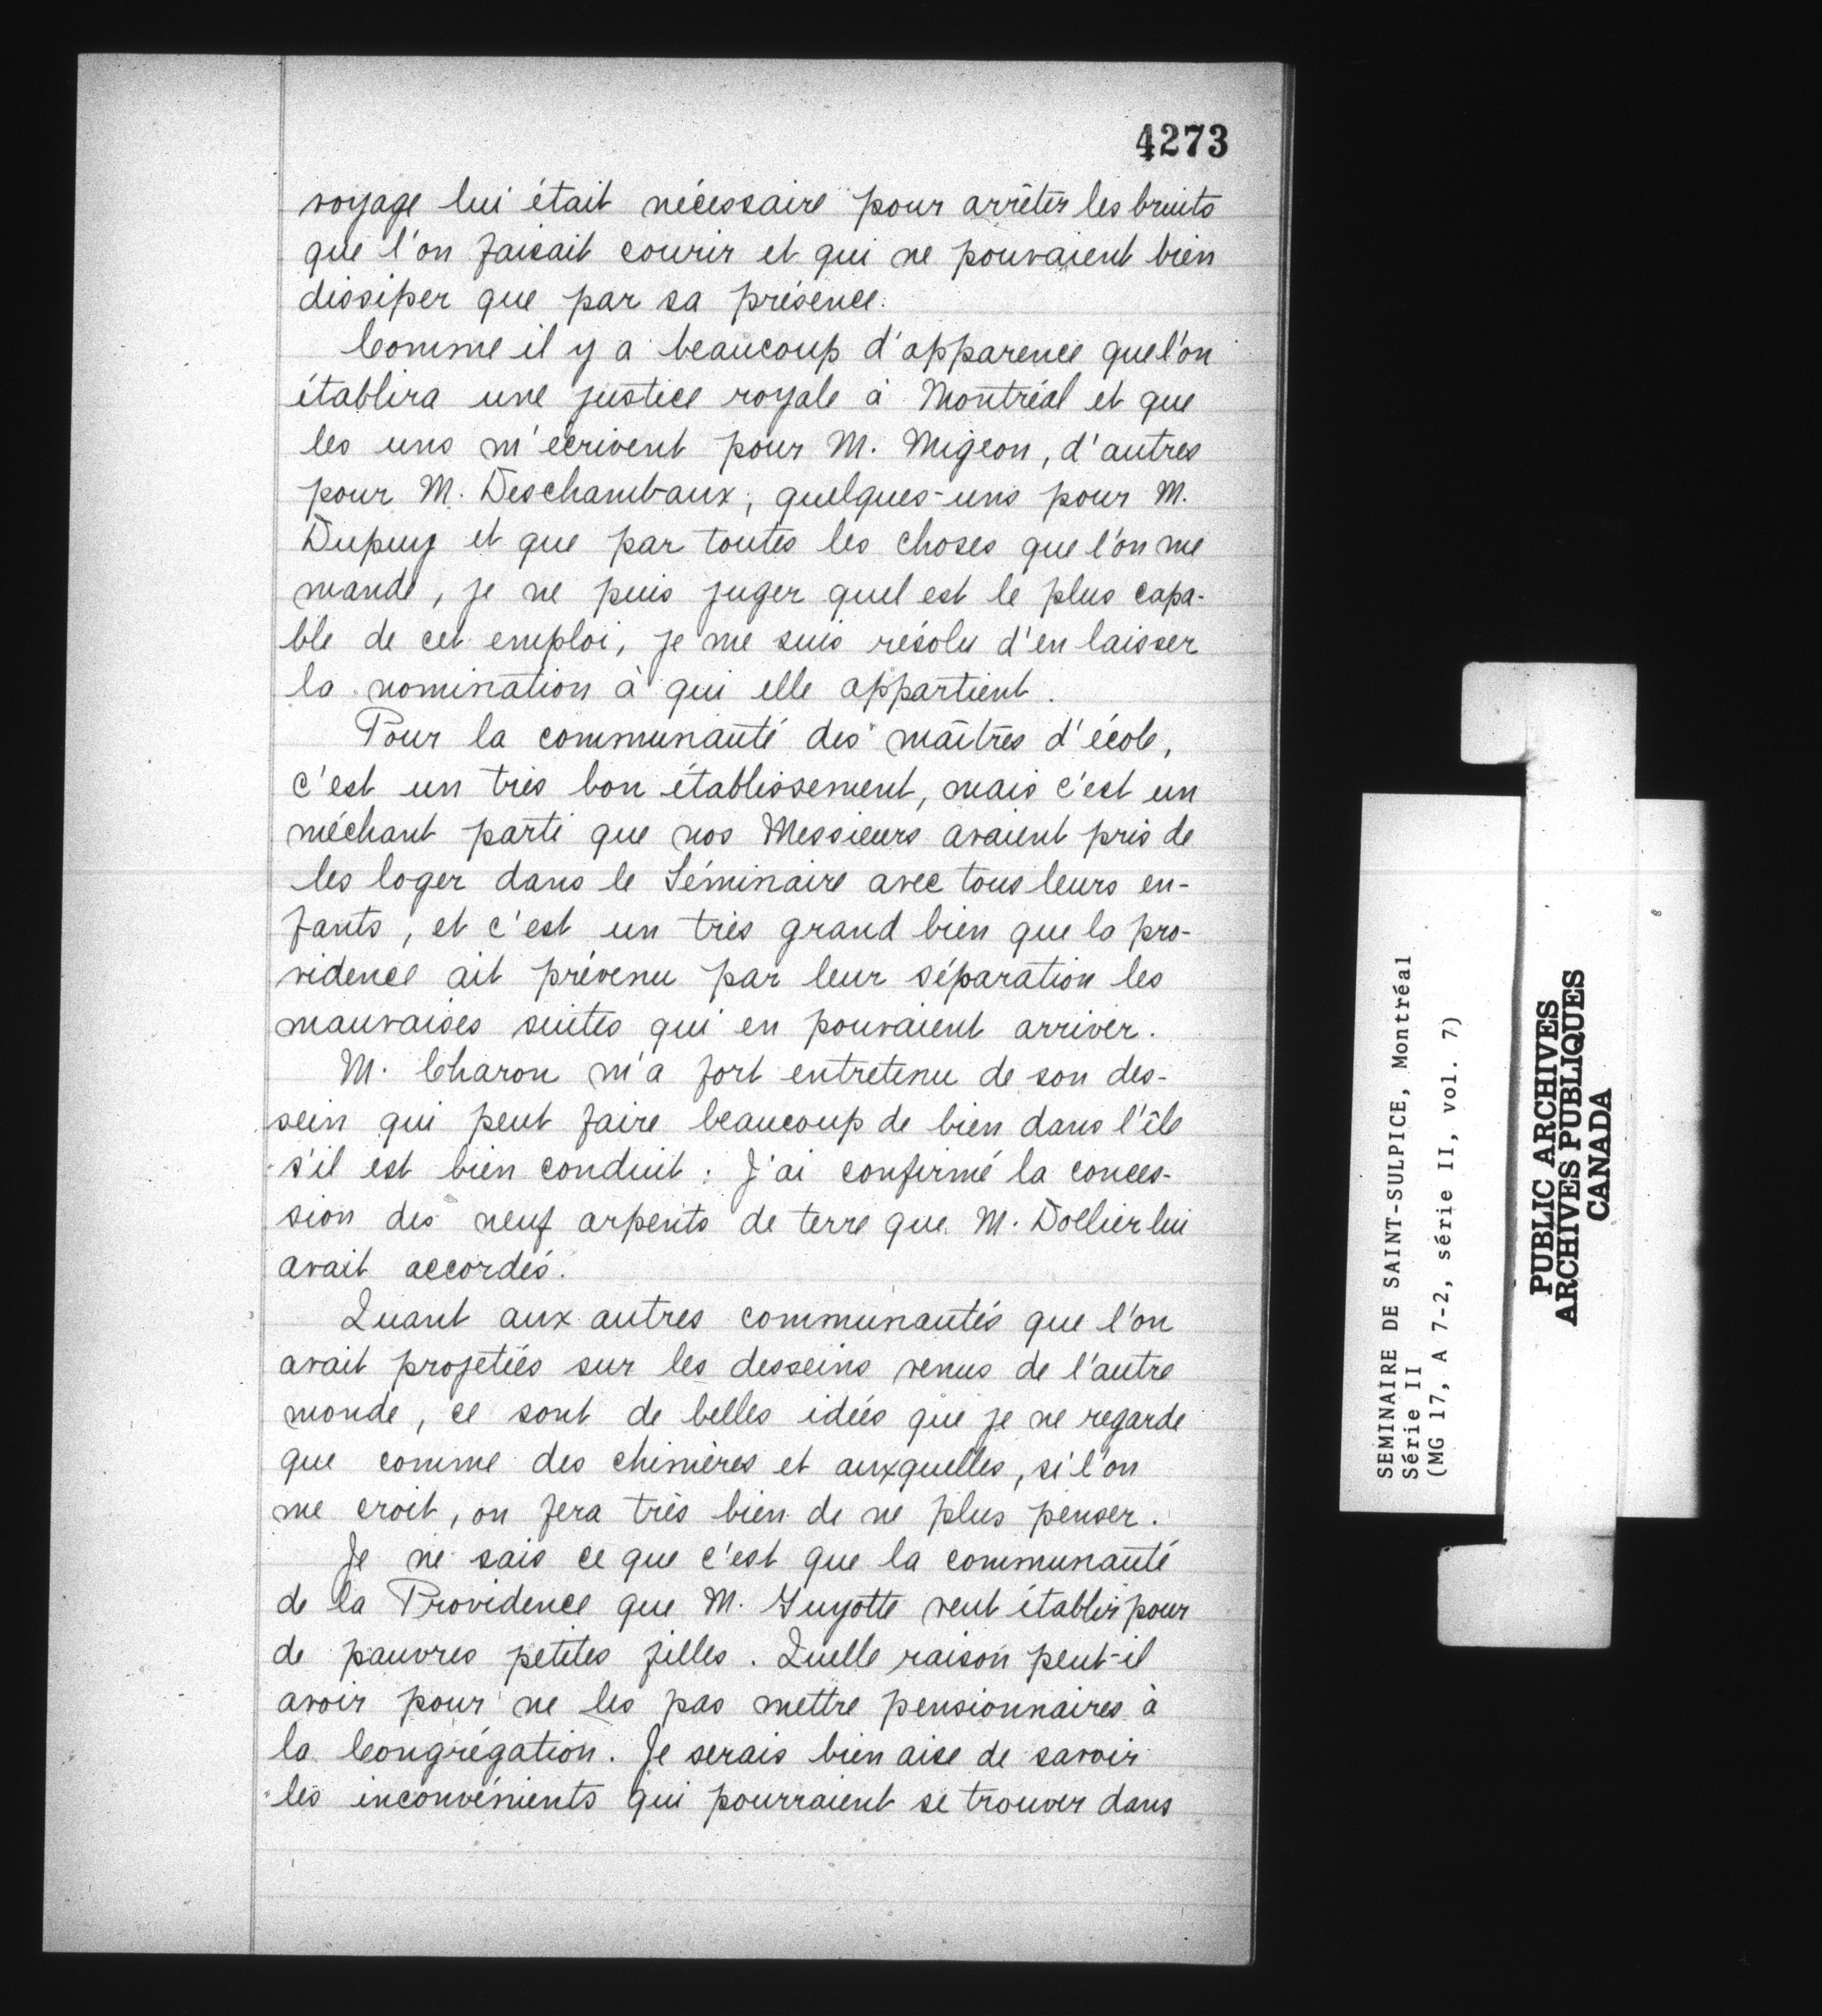 4273
voyage lui était nécessaire pour arrêter les bruits
que l'on faisait courir et qui ne pouvaient bien
dissiper que par sa présence.
Comme il y a beaucoup d'apparence que l'on
établira une justice royale à Montréal et que
les uns m'écrivent pour M. Migeon, d'autres
pour M. Deschambaux, quelques-uns pour M.
Dupuy et que par toutes les choses que l'on me
mande, je ne puis juger quel est le plus capa-
ble de cet emploi, je me suis résolu d'en laisser
la nomination à qui elle appartient.
Pour la communauté des maîtres d'école,
c'est un très bon établissement, mais c'est un
méchant parti que nos Messieurs avaient pris de
les loger dans le Séminaire avec tous leurs en-
fants, et c'est un très grand bien que la pro-
vidence ait prévenu par leur séparation les
mauvaises suites qui en pouvaient arriver.
M. Charon m'a fort entretenu de son des-
sein qui peut faire beaucoup de bien dans l'île
s'il est bien conduit : J'ai confirmé la conces-
sion des neuf arpents de terre que M. Dollier lui
avait accordés.
Quant aux autres communautés que l'on
avait projetées sur les desseins venus de l'autre
monde, ce sont de belles idées que je ne regarde
que comme des chimères et auxquelles, si l'on
me croit, on fera très bien de ne plus penser.
Je ne sais ce que c'est que la communauté
de la Providence que M. Guyotte veut établir pour
de pauvres petites filles. Quelle raison peut-il
avoir pour ne les pas mettre pensionnaires à
la Congrégation. Je serais bien aise de savoir
les inconvénients qui pourraient se trouver dans
SEMINAIRE DE SAINT-SULPICE, Montréal
Série II
(MG 17, A 7-2, série II, vol. 7)
PUBLIC ARCHIVES
ARCHIVES PUBLIQUES
CANADA